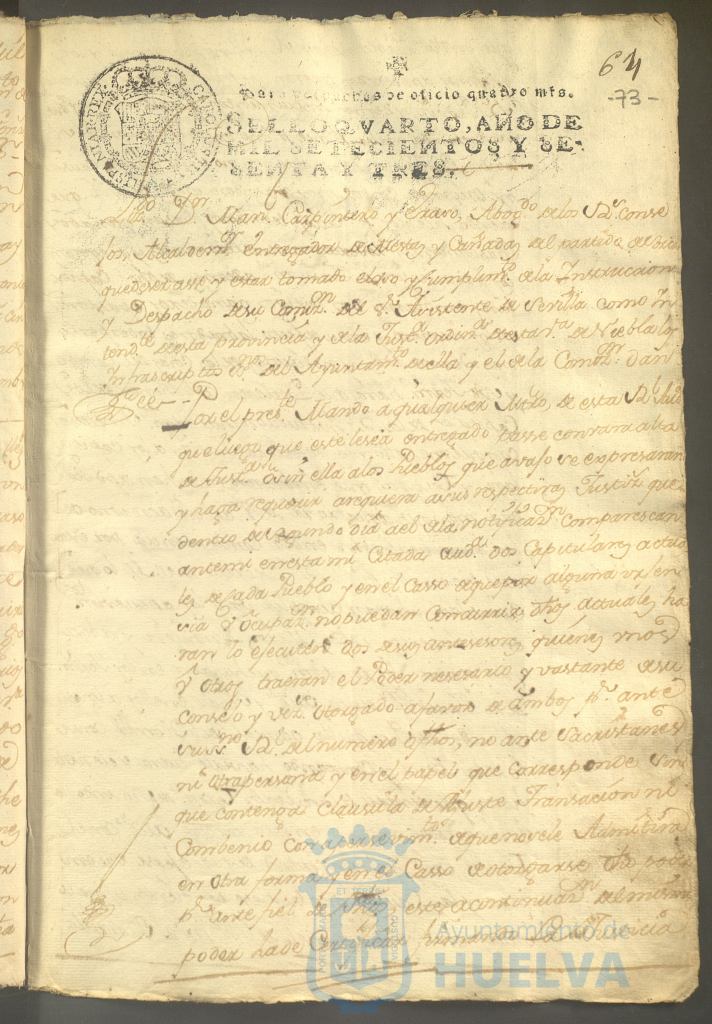 64
-73-
HISPANIARREX CAROLVS III
Para despachos de oficio quatro mrs.
SELLO QVARTO, AÑO DE
MIL SETECIENTOS Y SE-
SENTA Y TRES.
Lizdo Dn Manl Carpintero y Erazo, Abogdo de los Rs Conse
jos, Alcalde mr entregador de Mestas y Cañadas del partido de
que de ser assi y estar tomado el uso y Cumplimto de la Instruccion
y Despacho de su Comon del Sr Asistente de Sevilla como In
tendte de esta provincia y de la Justa ordina de esta va de Niebla los
Infrascriptos del Ayuntamto de ella y el de la Comon dan
fee --
Por el preste Mando a qualquiera de esta Rl Auda
que luego que este le sea entregado passe con vara alta
de Justa o sin ella a los Pueblos que avajo se expresaran
y haga requerir a sus respectivas Justas que
dentro de segundo dia de el de la notificazn Comparescan
ante mi en esta mi Citada auda dos Capitulares actua
les de Cada Pueblo y en el Casso de que por alguna
u ocupazn no puedan Concurrir dhos actuales ha
ran lo ejecuten dos de sus antesesores quienes unos
y otros traeran el Poder nesesario y vastante de su
Consejo y vezs otorgado a favor de ambos pr ante
Rl del numero o fhos, no ante Sacristanes
ni otra persona y en el papel que Corresponde sin
que contenga clausula de Ajuste Transacion ni
Combenio con apersevimto de que no se le Admitira
en otra forma y en el Casso de otorgarse dho poder
pr ante fiel de fhos, este a continuazn del mismo
poder ha de Certificar la Justicia
Ayuntamiento de
HUELVA